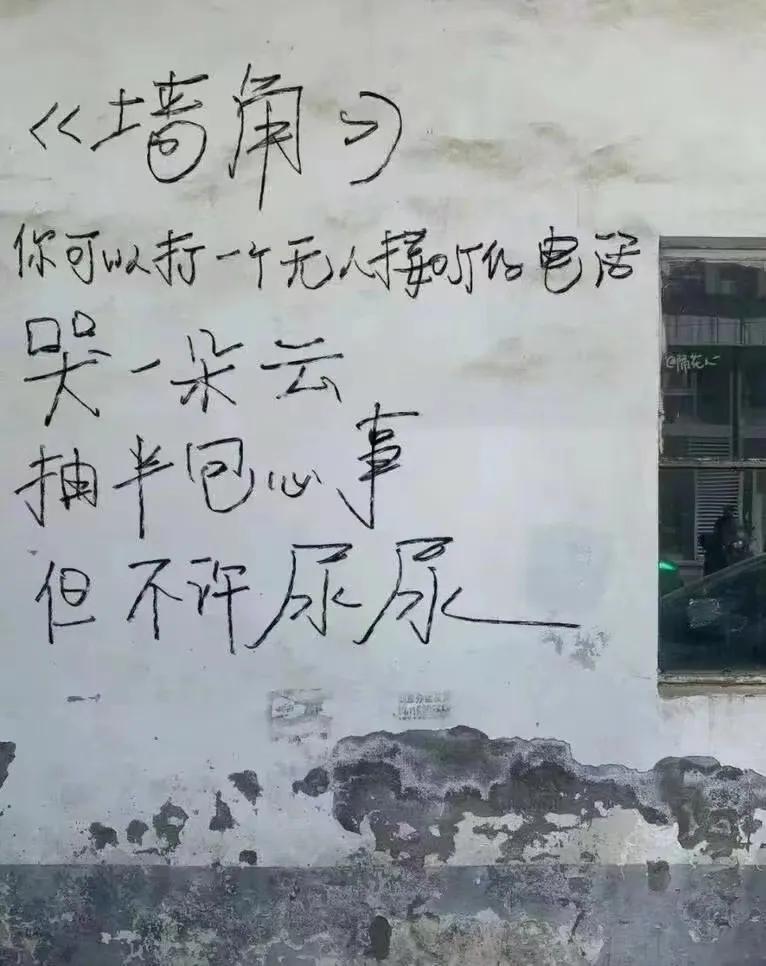 《墙角》
你可以打一个无人接听的电话
哭一朵云
抽半包心事
但不许尿尿